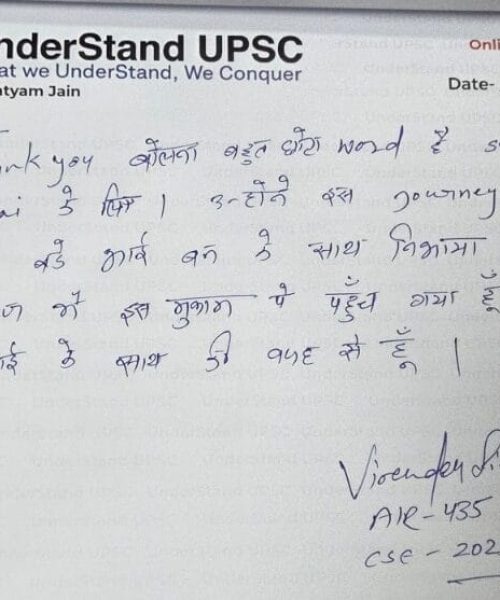 nderStand UPSC
at we UnderStand, We Conquer
tyam Jain
Onli
Date-
ink you बोलना बहुत छोटा word है
ai के लिए । उन्होंने इस journey
बड़े भाई बन के साथ निभाया
मैं इस मुकाम पे पहुँच गया हूँ
ई के साथ की वजह से हूँ ।
Virender Si
AIR-435
CSE - 202